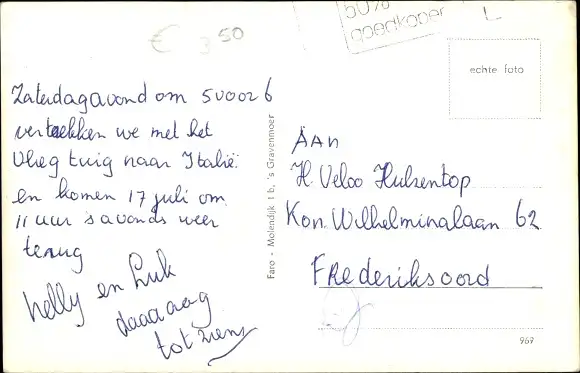 50%
goedkoper
€ 3 50
L
echte foto
Zaterdagavond om 5 voor 6
vertrekken we met het
Vlieg tuig naar Italië.
en komen 17 juli om
11 uur 's avonds weer
terug
Nelly en Luk
daaaaag
tot ziens
Faro - Molendijk 1 b, 's Gravenmoer
AAn
H. Veloo Hulzentop
Kon. Wilhelminalaan 62
FRederiksoord
969